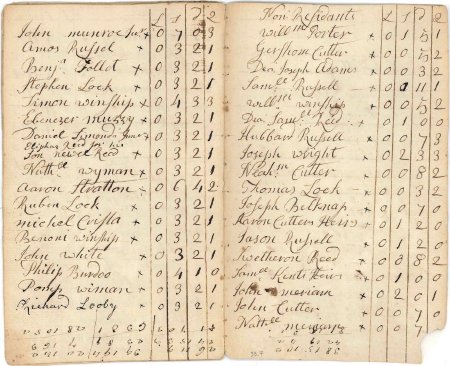 £ 1 d 2
John munroe Junr × 0 7 0 3
Amos Russel × 0 3 2 1
Benjn Follet × 0 3 2 1
Stephen Lock × 0 3 2 1
Simon winship × 0 4 3 3
Ebenezer muzzy × 0 3 2 1
Daniel Simonds Junr × 0 3 2 1
Reed for his
Son Reed × 0 3 2 1
Nathll wyman × 0 3 2 1
Aaron Stratton × 0 6 4 2
Ruben Lock × 0 3 2 1
michel × 0 3 2 1
Benoni winship × 0 3 2 1
John white × 0 3 2 1
Philip Burdoo × 0 4 1 0
Pomp wiman × 0 3 2 1
Prichard Looby × 0 3 2 1
Non Residants £ 1 d 2
willm Porter × 0 1 5 1
Gershom Cutter × 0 0 5 2
Dea Joseph Adams × 0 0 3 2
Samll Russell × 0 1 11 1
willm winship × 0 0 5 2
Dea Samll Reed × 0 1 0 0
Hubbard Russell × 0 0 7 3
Joseph Wright × 0 2 3 3
Cutter × 0 0 8 2
Thomas Lock × 0 0 3 2
Joseph Belknap × 0 0 7 0
Aaron Cutters Heirs × 0 1 2 0
Jason Russell × 0 1 2 0
Reed × 0 8 8 2
Samll Kents Heirs × 0 1 0 0
John meriam × 0 2 0 1
John Cutter × 0 0 7
Nathll × 0 0 7